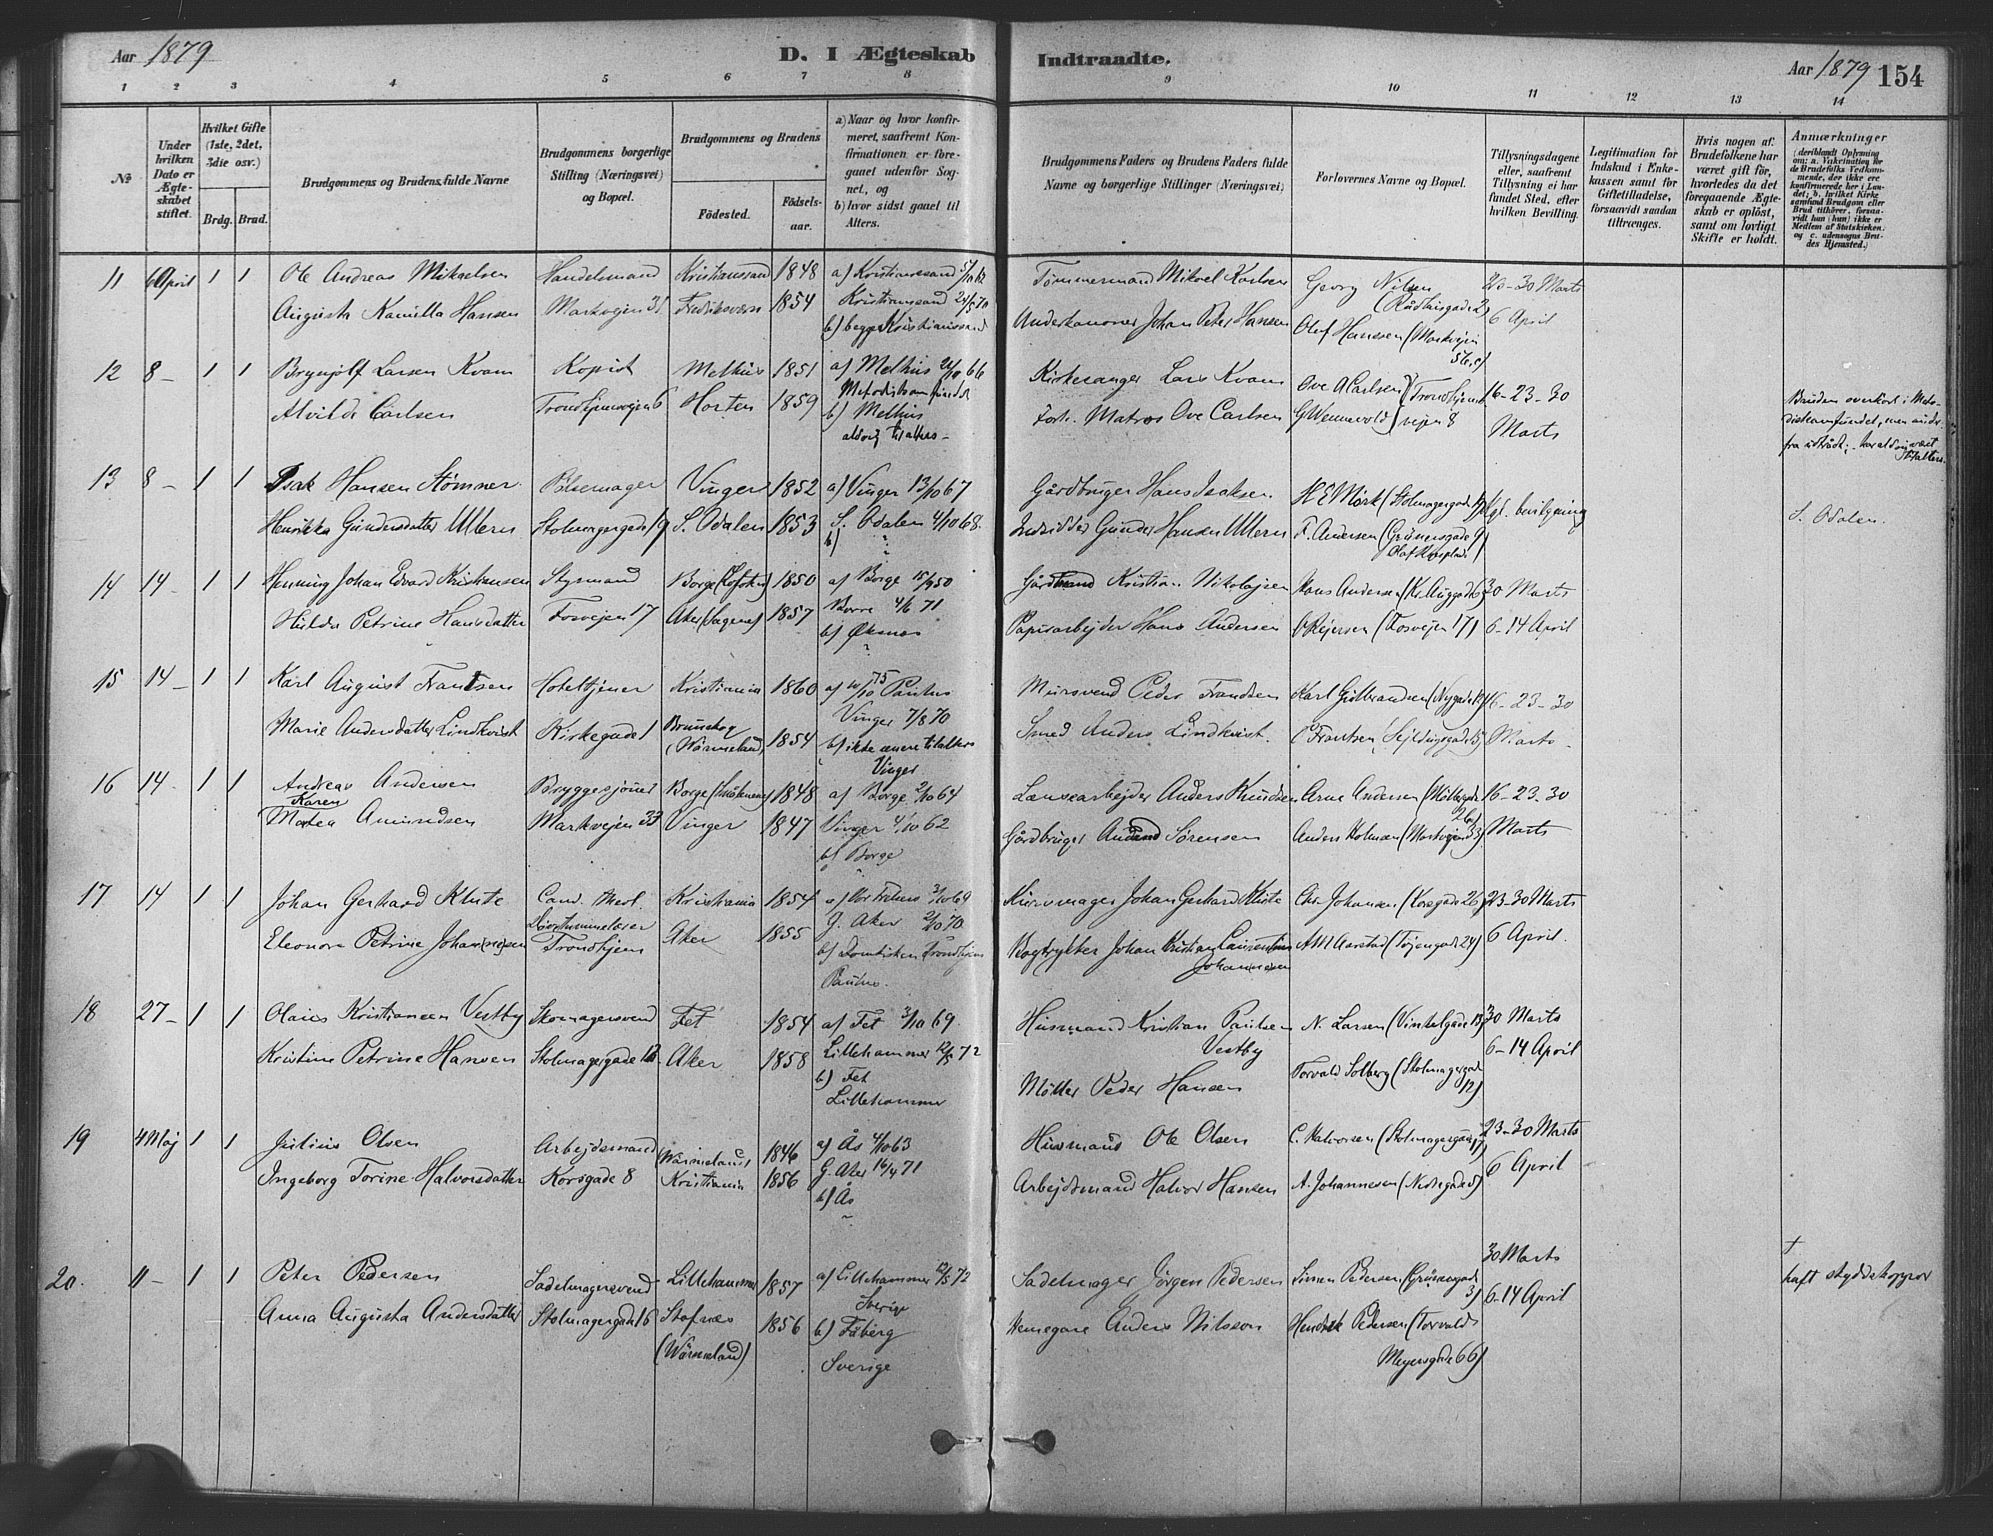 Aar 1879
D. I Ægteskab Indtraadte.
Aar 1879 154
1 2 3 4 5 6 7 8 9 10 11 12 13 14
No
Under hvilken Dato er Ægteskabet stiftet.
Hvilket Gifte (1ste, 2det, 3die osv.)
Brdg. Brud.
Brudgommens og Brudens fulde Navne
Brudgommens borgerlige Stilling (Næringsvei) og Bopæl.
Brudgommens og Brudens
Fødested.
Fødselsaar.
a) Naar og hvor konfirmeret, saafremt Konfirmationen er foregaaet udenfor Sognet, og
b) hvor sidst gaaet til Alters.
Brudgommens Faders og Brudens Faders fulde Navne og borgerlige Stillinger (Næringsvei)
Forlovernes Navne og Bopæl.
Tillysningsdagene eller, saafremt Tillysning ei har fundet Sted, efter hvilken Bevilling.
Legitimation for Indskud i Enkekassen samt for Giftetilladelse, forsaavidt saadan tiltrænges.
Hvis nogen af Brudefolkene har været gift før, hvorledes da det foregaaende Ægteskab er opløst, samt om lovligt Skifte er holdt.
Anmærkninger
(deriblandt Oplysning om: a. Vakcination for de Brudefolks Vedkommende, der ikke ere konfirmerede her i Landet; b. hvilket Kirkesamfund Brudgom eller Brud tilhører, forsaavidt han (hun) ikke er Medlem af Statskirken. og c. udensogns Brudes Hjemsted.)
11 6 April 1 1 Ole Andreas Mikaelsen Handelsmand Kristianssand 1848 a) Kristianssand 5/10 62 Tømmermand Mikael Karlsen Georg Nilsen 23-30 Marts
Augusta Kamilla Hansen Markvejen 31 Fredriksværn 1854 Kristianssand 24/5 70 Underkanoner Johan Peter Hansen Olaf Hanssen (Markvejen 6 April
b) begge Kristianssand 56c)
12 8 - 1 1 Brynjolf Larsen Kvam Kopist Melhus 1851 a) Melhus 21/10 66 Kirkesanger Lars Kvam Ove A Carlsen (Trondhjems 16-23-30
Alvilde Carlsen Trondhjemsvejen 6 Horten 1859 Metodistsamfundet Forh. Matros Ove Carlsen G Wennevold) vejen 8 Marts
b) Melhus
aldrig til alters -
13 8 - 1 1 Isak Hansen Stømner Pølsemager Vinger 1852 a) Vinger 13/10 67 Gårdbruger Hans Isaksen H E Mørk (Stolmagergade 19) kgl. bevilgning
Henrikka Gundersdatter Ullern Stolmagergade 19 S. Odalen 1853 S. Odalen 4/10 68. Inderst Gunder Hansen Ullern F. Andersen (Grünersgade 9) S. Odalen.
b) "
14 14 - 1 1 Henning Johan Edvard Kristiansen Styrmand Borge (Lofoten) 1850 a) Borge 15/9 50 Gårdmand Kristian Nikolajsen Hans Andersen 30 Marts
Hulda Petrine Hansdatter Fosvejen 17 Aker (Sagene) 1857 Borre 4/6 71 Papirarbejder Hans Andersen O Rejersen (Fosvejen 17) 6-14 April
b) Øksnes
15 14 - 1 1 Karl August Frantsen Hoteltjener Kristiania 1860 a) 10/10 75 Paulus Mursvend Peder Frandsen Karl Gulbrandsen (Nygade 16-23-30
Marie Andersdatter Lindkvist Kirkegade 1 Brunskog (Wärmeland) 1854 Vinger 7/8 70 Smed Anders Lindkvist. C Frantsen Marts -
b) ikke senere til alters
Vinger
16 14. 1 1 Andreas Andersen Bryggesjouer Borge 1848 a) Borge 2/10 64 Lænsearbejder Anders Knudsen Arne Andersen (Møllergade 16-23-30
Karen
Matea Amundsen Markvejen 33 Vinger 1847 Vinger 4/10 62 Gårdbruger Amund Sørensen Anders Holmsen (Markvejen 33) Marts
b) Borge
17 14 1 1 Johan Gerhard Klute Cand. theol. Kristiania 1854 a) Vor Frelsers 3/10 69 Kurvmager Johan Gerhard Klute Chr. Johansen (Korsgade 26) 23-30 Marts
Døvstummelærer
Eleonora Petrine Johannesen Trondhjem Aker 1855 G. Aker 2/10 70 Bogtrykker Johan Kristian Laurentius Johannesen A M Aarstad (Tøjengade 24) 6 April.
b) Domkirken Trondhjem
Paulus.
18 27 - 1 1 Olaus Kristiansen Vestby Skomagersvend Fet 1854 a) Fet 3/10 69. Husmand Kristian Paulsen Vestby N. Larsen (Vinkelgade 13) 30 Marts
Kristine Petrine Hansen Stolmagergade 12 Aker 1858 Lillehammer 12/5 72 Møller Peder Hansen Torvald Solberg (Stolmagergade 12) 6-14 April
b) Fet
Lillehammer
19 4 Maj 1 1 Julius Olsen Arbejdsmand Wärmeland 1846 a) Ås 4/10 63 Husmand Ole Olsen C. Halvorsen (Stolmagergade 17) 23-30 Marts
Ingeborg Torine Halvorsdatter Korsgade 8 Kristiania 1856 G. Aker 16/4 71 Arbejdsmand Halvor Hansen A. Johannesen (Nedregade 5) 6 April
b) Ås
20. 11 - 1 1 Peter Pedersen Sadelmagersvend Lillehammer 1857 a) Lillehammer 12/5 72 Sadelmager Jörgen Pedersen Simen Pedersen (Grünersgade 3) 30 Marts haft skyddskoppor
Anna Augusta Andersdatter Stolmagergade 16 Stafnäs 1856 Sverige Hemegare Anders Nilsson Hendrik Pedersen (Torvald 6-14 April
(Wärmeland) b) Fåberg Meyersgade 66)
Sverige